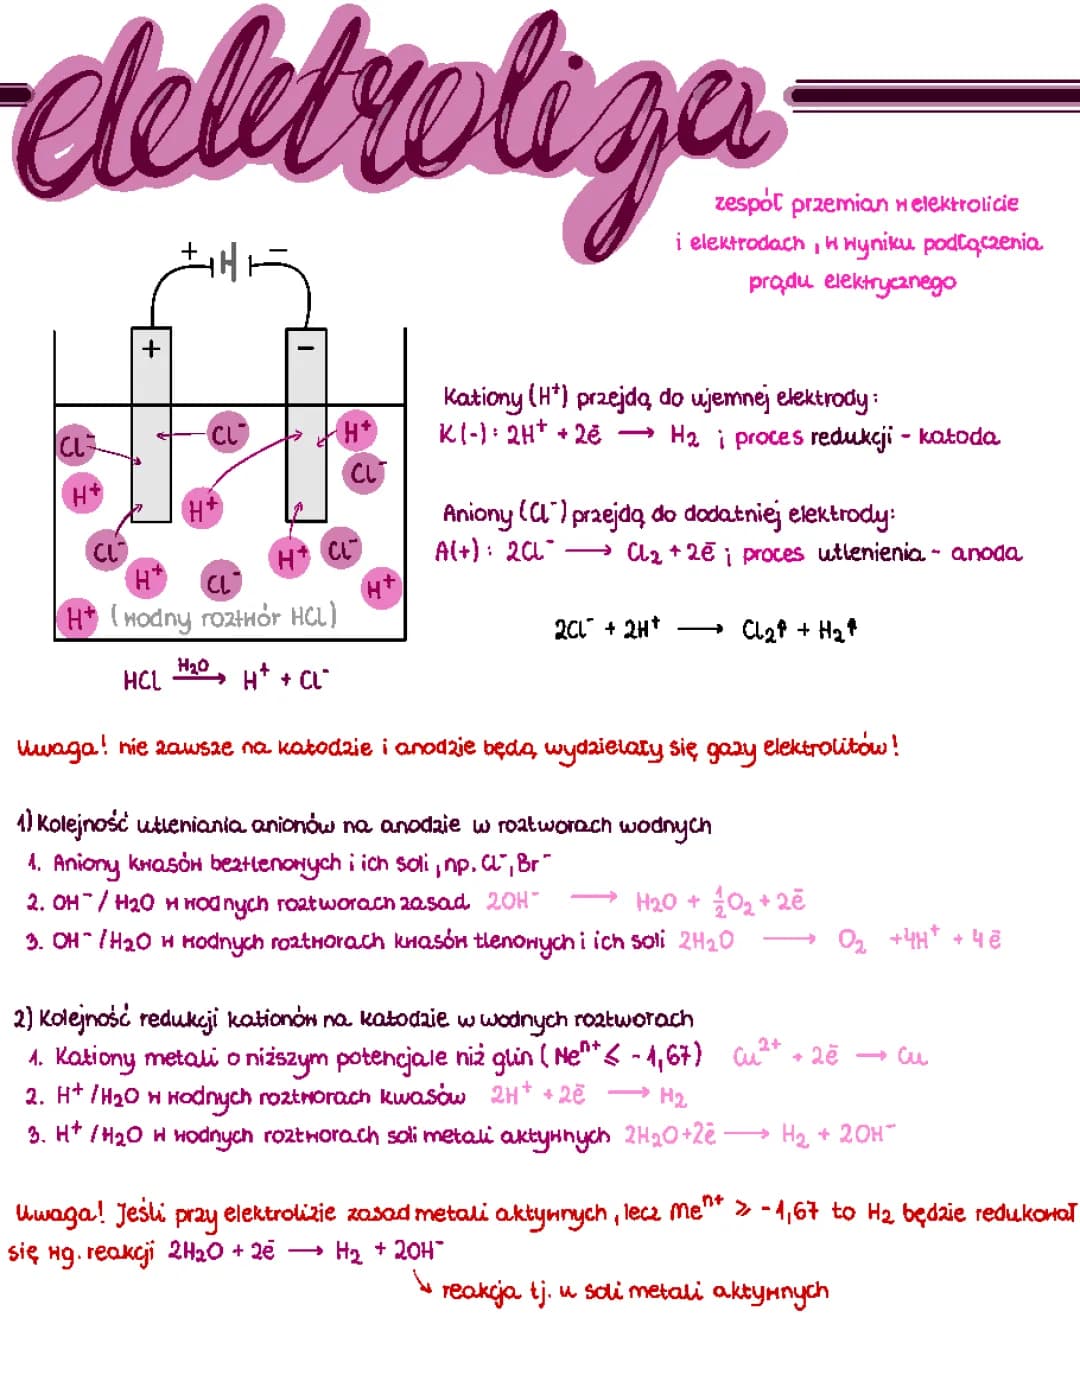 elektroliza
zespół przemian w elektrolicie
i elektrodach, w wyniku podłączenia
prądu elektrycznego
+ -
+ -
Cl⁻ Cl⁻ H⁺
H⁺ H⁺ Cl⁻
Cl⁻ H⁺ Cl⁻
H⁺ Cl⁻ H⁺
H⁺ (wodny roztwór HCl)
HCl H₂O → H⁺ + Cl⁻
Kationy (H⁺) przejdą do ujemnej elektrody:
K(-): 2H⁺ + 2ē → H₂ ; proces redukcji - katoda
Aniony (Cl⁻) przejdą do dodatniej elektrody:
A(+): 2Cl⁻ → Cl₂ + 2ē ; proces utlenienia - anoda
2Cl⁻ + 2H⁺ → Cl₂↑ + H₂↑
Uwaga! nie zawsze na katodzie i anodzie będą wydzielały się gazy elektrolitów!
1) Kolejność utleniania anionów na anodzie w roztworach wodnych
1. Aniony kwasów beztlenowych i ich soli, np. Cl⁻, Br⁻
2. OH⁻/H₂O w wodnych roztworach zasad 2OH⁻ → H₂O + ½O₂ + 2ē
3. OH⁻/H₂O w wodnych roztworach kwasów tlenowych i ich soli 2H₂O → O₂ +4H⁺ + 4ē
2) Kolejność redukcji kationów na katodzie w wodnych roztworach
1. Kationy metali o niższym potencjale niż glin (Meⁿ⁺ ⩽ -1,67) Cu²⁺ + 2ē → Cu
2. H⁺/H₂O w wodnych roztworach kwasów 2H⁺ + 2ē → H₂
3. H⁺/H₂O w wodnych roztworach soli metali aktywnych 2H₂O+2ē → H₂ + 2OH⁻
Uwaga! Jeśli przy elektrolizie zasad metali aktywnych, lecz Meⁿ⁺ ⩾ -1,67 to H₂ będzie redukował
się wg. reakcji 2H₂O + 2ē → H₂ + 2OH⁻
↘ reakcja tj. u soli metali aktywnych